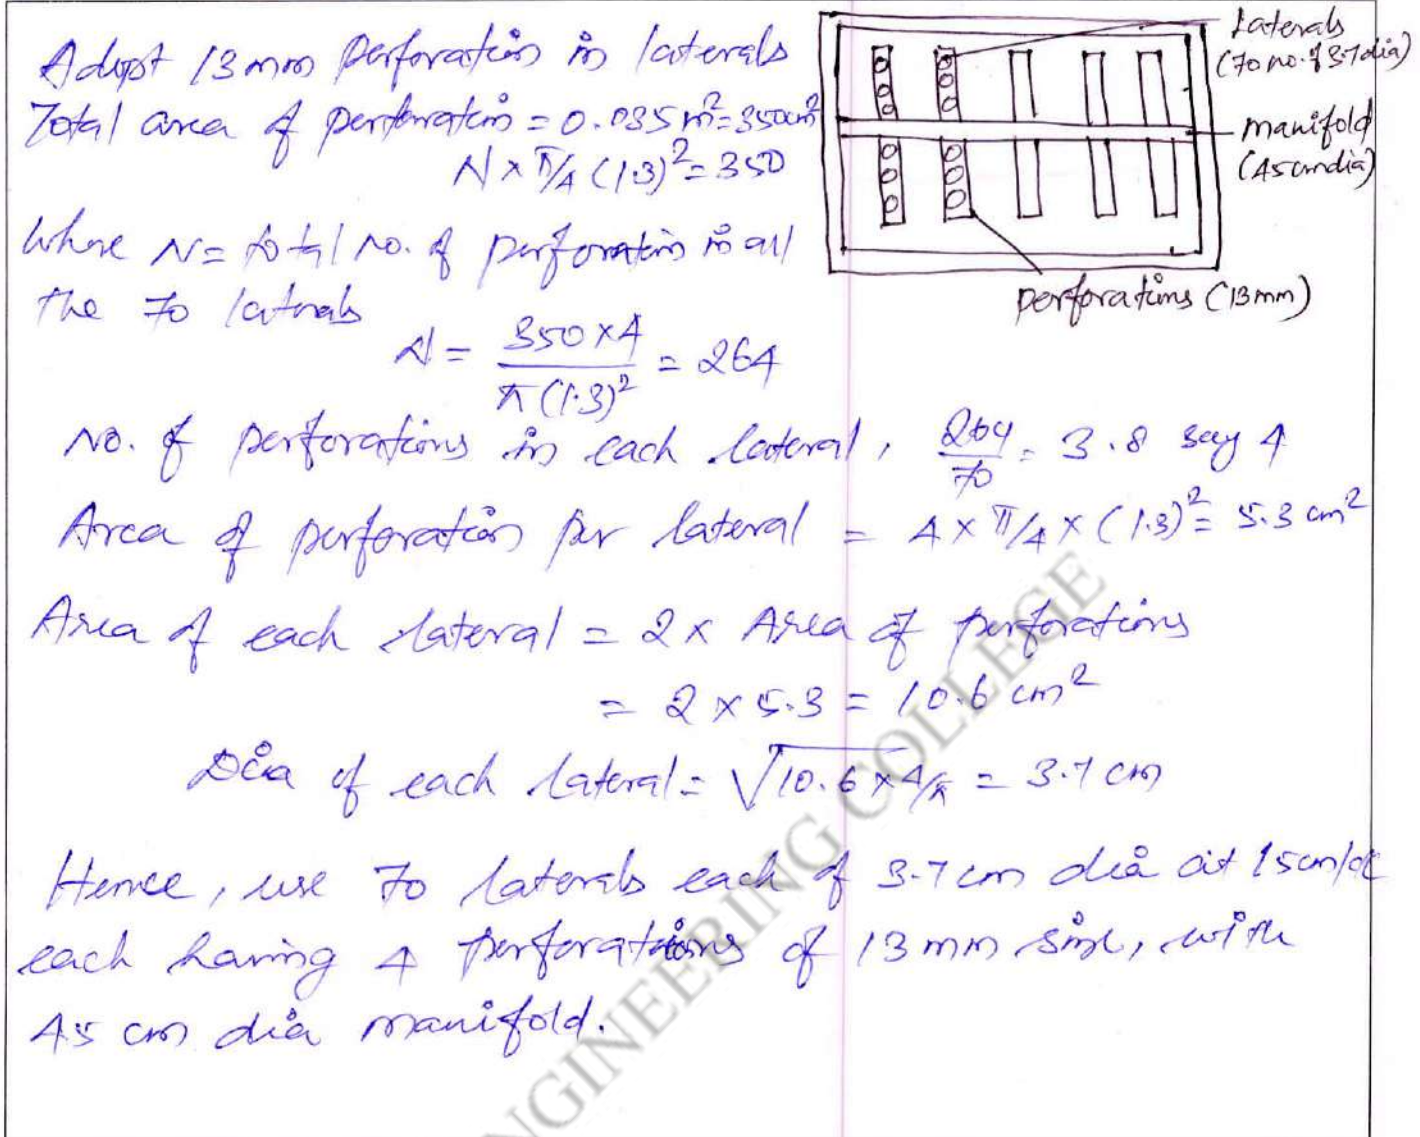 Adopt 13mm perforation in laterals
Total area of perforation = 0.035 m² = 350cm²
N × π/4 (1.3)² = 350
Where N = total no. of perforations in all
the 70 laterals
N = 350×4 / π(1.3)² = 264
No. of perforations in each lateral, 264/70 = 3.8 say 4
Area of perforation per lateral = 4 × π/4 × (1.3)² = 5.3 cm²
Area of each lateral = 2 × Area of perforations
= 2 × 5.3 = 10.6 cm²
Dia of each lateral = √10.6×4/π = 3.7 cm
Hence, use 70 laterals each of 3.7 cm dia at 15cm c/c
each having 4 perforations of 13 mm size, with
45 cm dia manifold.
Laterals
(70 no. of 3.7 dia)
manifold
(45 cm dia)
perforations (13mm)
NGINEERING COLLEGE